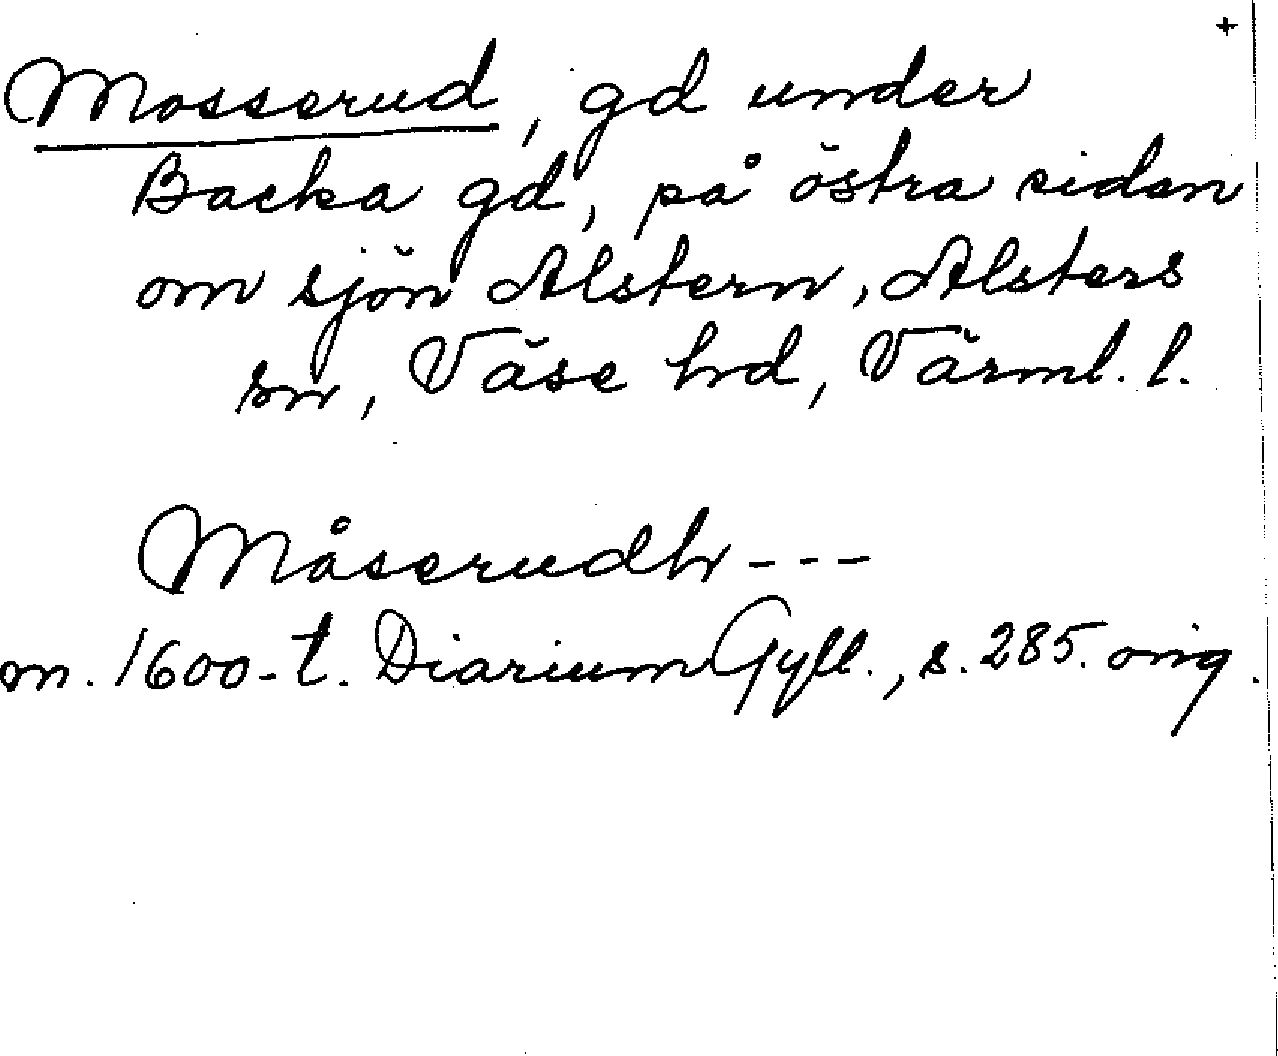 +
Mosserud, gd under
Backa gd, på östra sidan
om sjön Alstern, Alsters
sn, Väse hd, Värml. l.
Måserudh ---
m. 1600-t. Diarium Gyll., s. 285. orig.